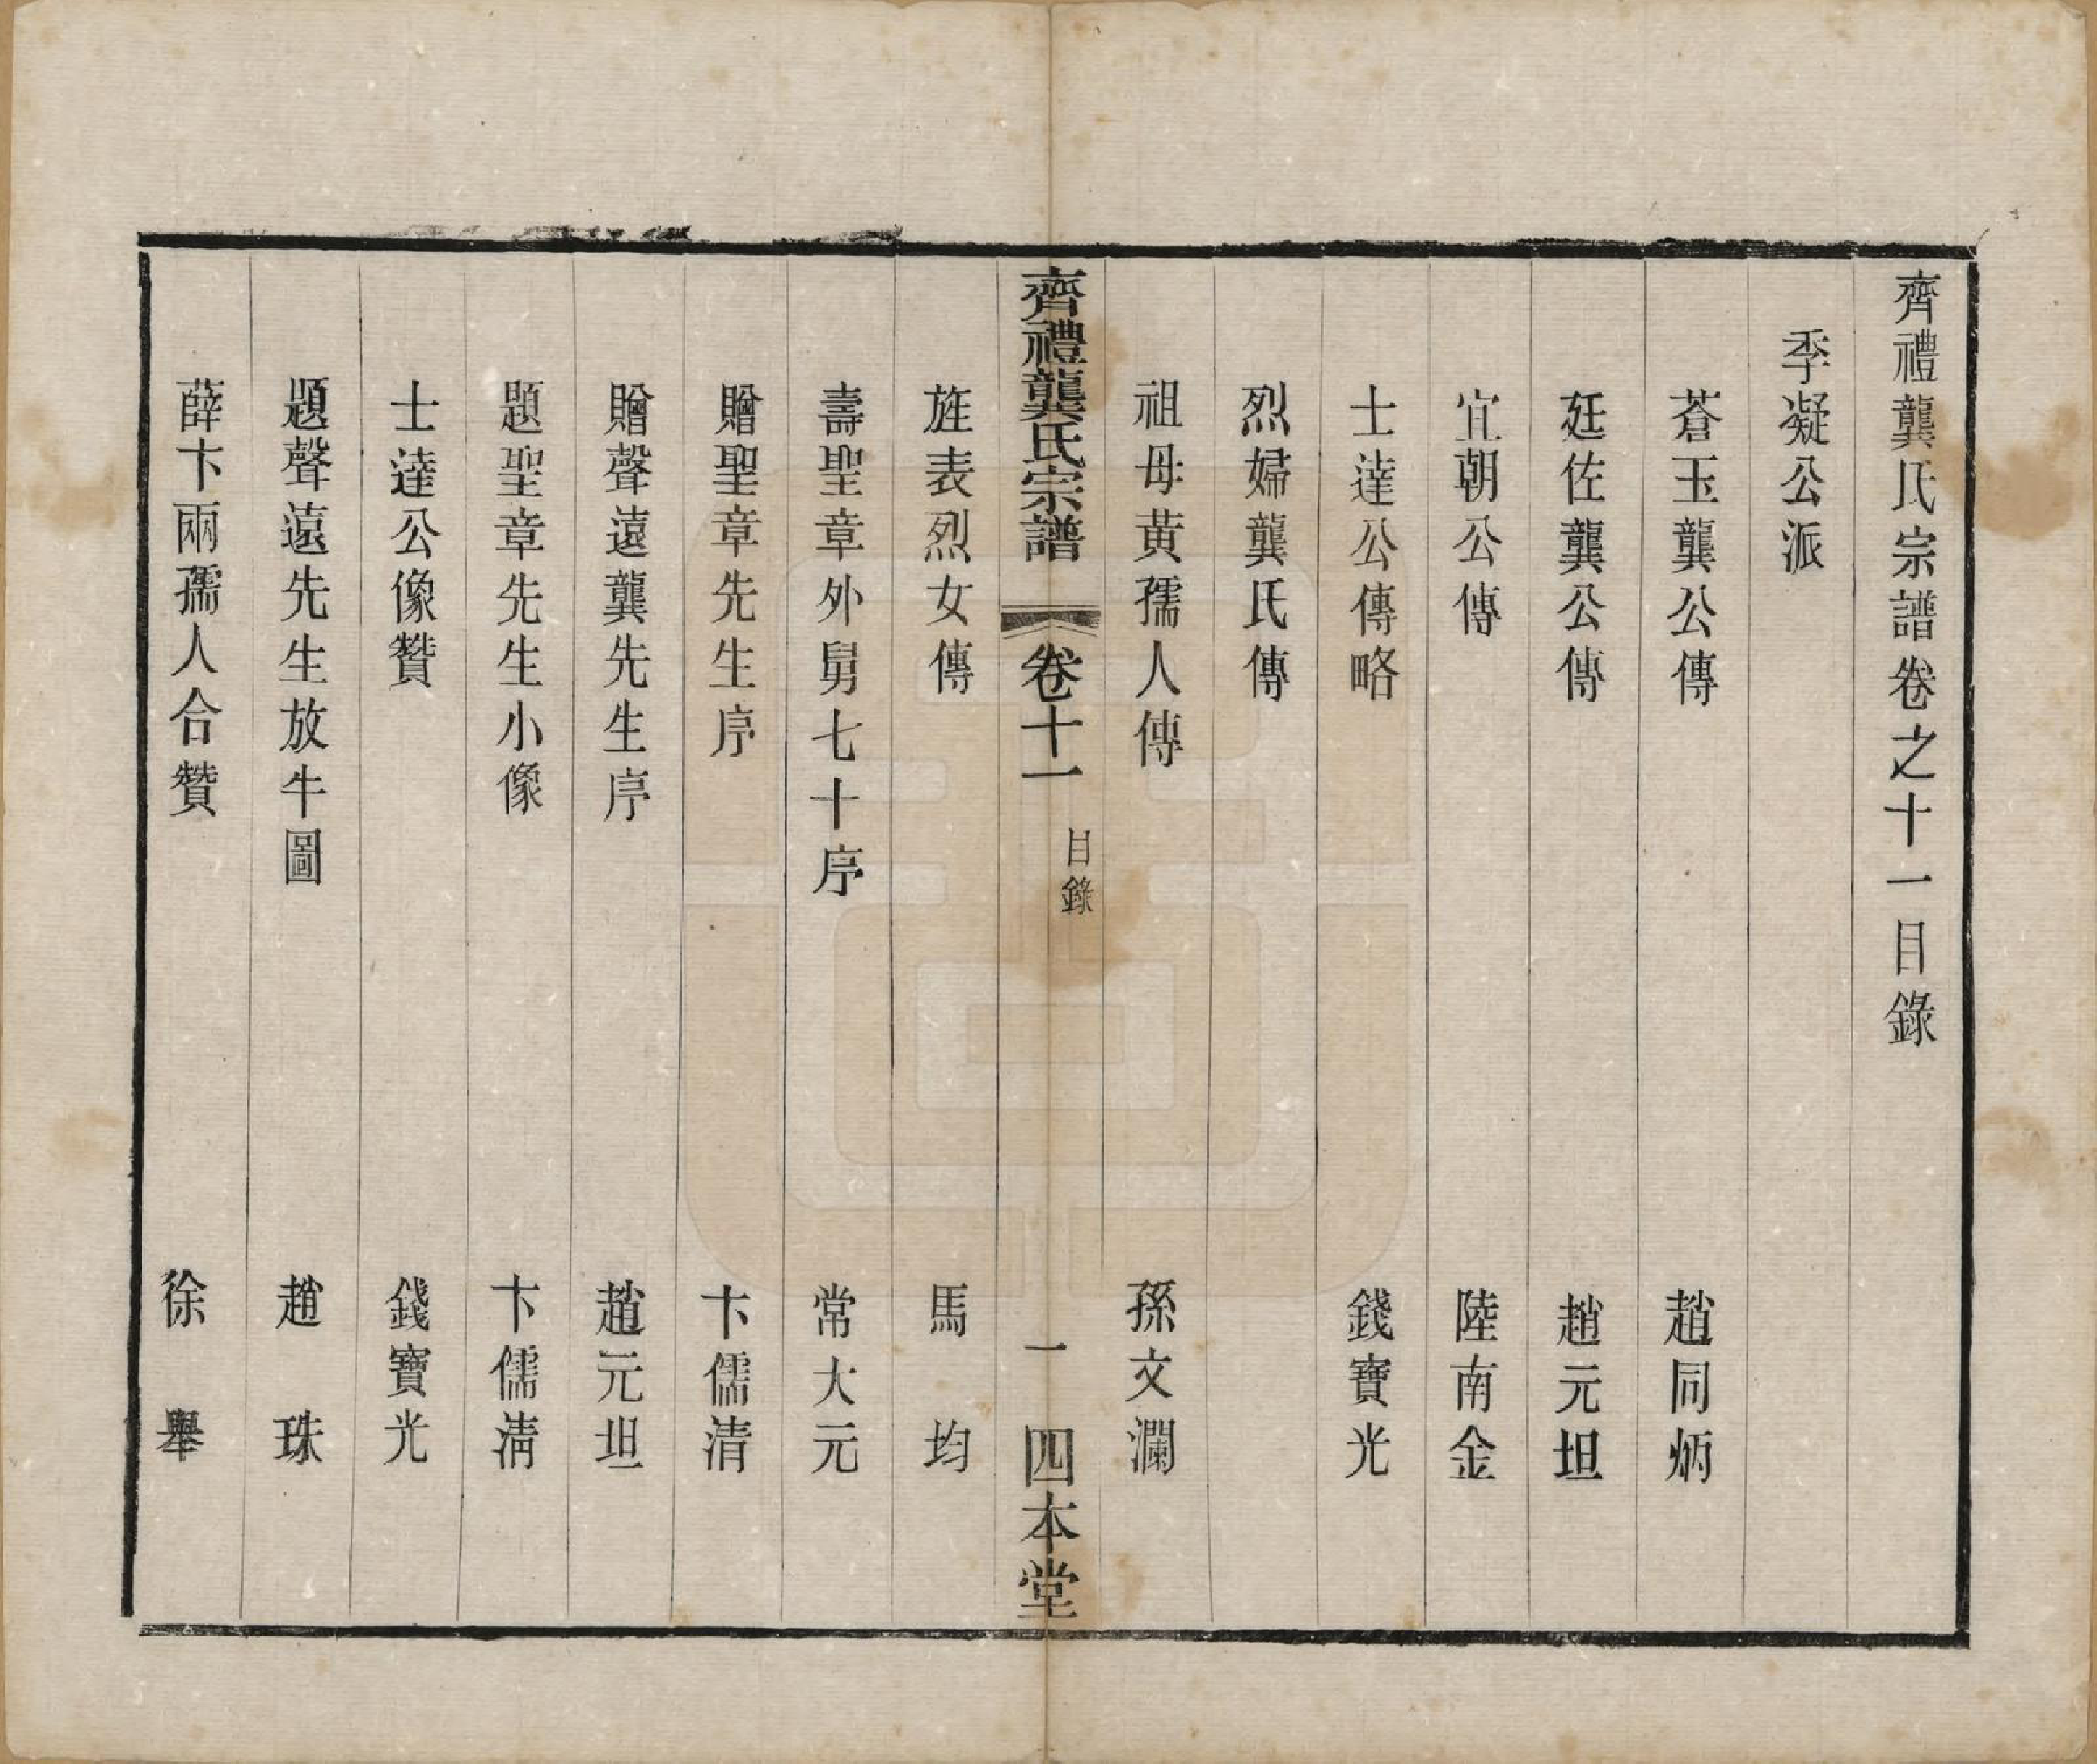 齊禮龔氏宗譜卷之十一目錄
季凝公派
蒼玉龔公傳 趙同炳
廷佐龔公傳 趙元坦
宜朝公傳 陸南金
士達公傳略 錢寶光
烈婦龔氏傳
祖母黃孺人傳 孫文瀾
齊禮龔氏宗譜 卷十一 目錄 一 四本堂
旌表烈女傳 馬均
壽聖章外舅七十序 常大元
贈聖章先生序 卞儒清
贈聲遠龔先生序 趙元坦
題聖章先生小像 卞儒淸
士達公像贊 錢寶光
題聲遠先生放牛圖 趙珠
薛卞兩孺人合贊 徐舉